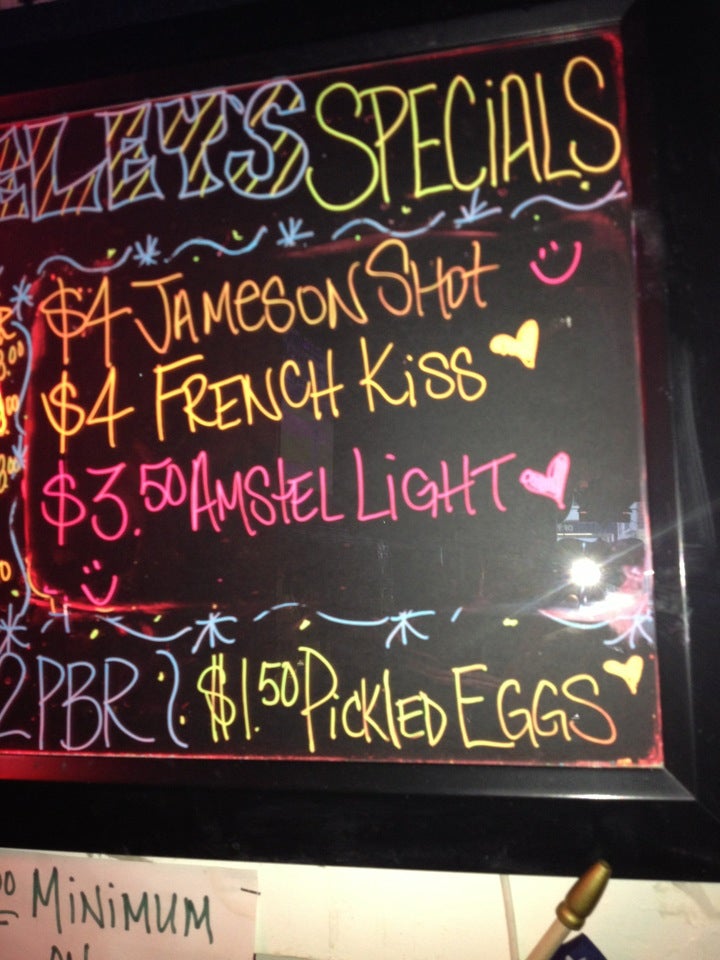 ELEY'S SPECIALS
$4 JAMESON SHOT
$4 FRENCH KISS
$3.50 AMSTEL LIGHT
2 PBR $1.50 PICKLED EGGS
MINIMUM